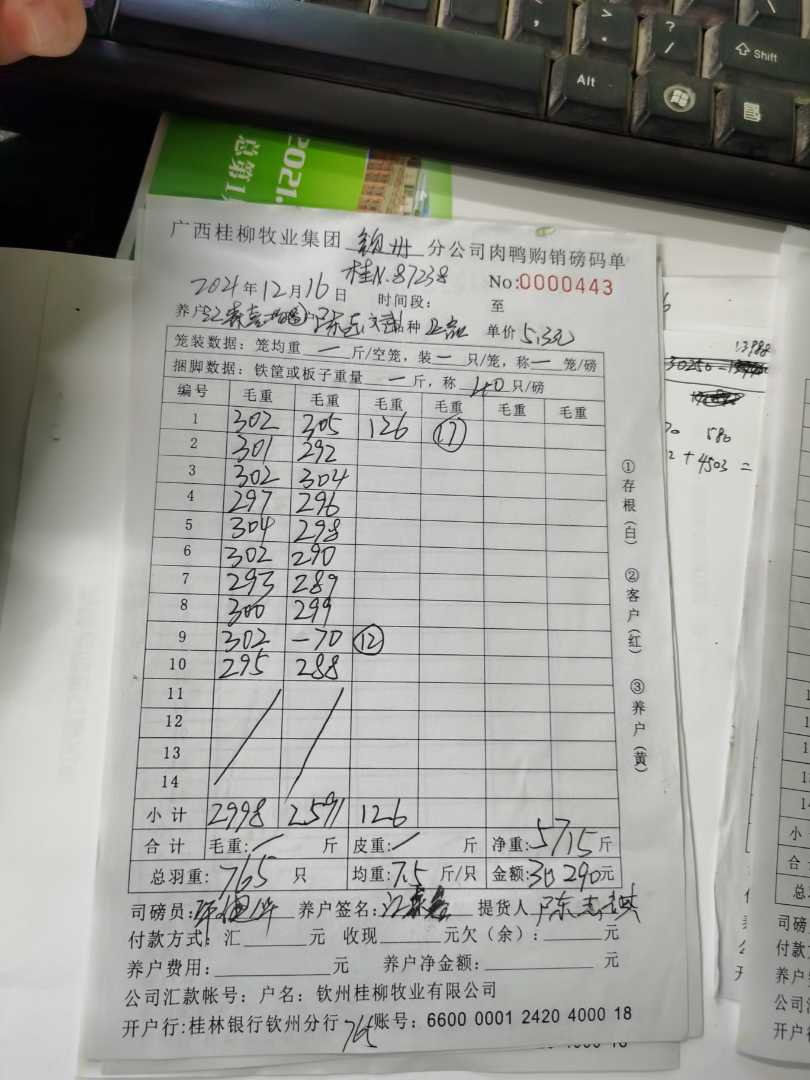 Alt
Shift
2021.
总第1
广西桂柳牧业集团 钦州 分公司肉鸭购销磅码单
桂N.87238 No:0000443
2021年12月16日 时间段: 至
养户 单价 5.3元
笼装数据: 笼均重 — 斤/空笼, 装 — 只/笼, 称 — 笼/磅
捆脚数据: 铁筐或板子重量 — 斤, 称 40 只/磅
编号 毛重 毛重 毛重 毛重 毛重 毛重
1 302 305 126 ⑰
2 301 292
3 302 304
4 297 296
5 304 298
6 302 290
7 293 289
8 300 299
9 302 -70 ⑫
10 295 288
11
12
13
14
小计 2998 2591 126
合计 毛重: 斤 皮重: 斤 净重: 5715 斤
总羽重: 765 只 均重: 7.5 斤/只 金额: 30290元
司磅员: 养户签名: 提货人
付款方式: 汇 元 收现 元欠(余): 元
养户费用: 元 养户净金额: 元
公司汇款帐号: 户名: 钦州桂柳牧业有限公司
开户行:桂林银行钦州分行 765 账号: 6600 0001 2420 4000 18
①存根(白) ②客户(红) ③养户(黄)
13988
30250
580
+4503=